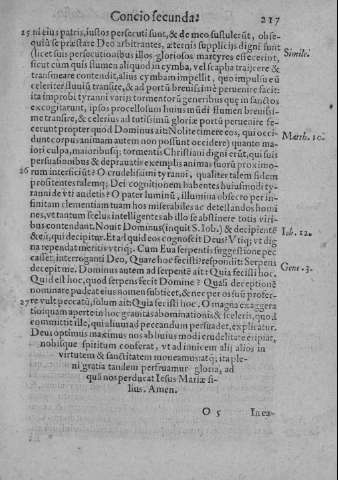 Concio secunda. 217
25 ni eius patris, iustos persecuti sunt, & de meo sustulerũt, obse-
quiũ se præstare Deo arbitrantes, æternis supplicijs digni sunt
(licet suis persecutionibus illos gloriosos martyres effecerint,
sicut cum quis flumen aliquod in cymba, vel scapha traijcere &
transmeare contendit, alius cymbam impellit, quo impulsu eũ
celeriter fluuiũ transire, & ad portũ breuissimè peruenire facit:
ita improbi tyranni varijs tormentorũ generibus que in sanctos
excogitarunt, ipsos procellosum huius mũdi flumen breuissi-
me transire, & celerius ad tutissimũ gloriæ portũ peruenire fe-
cerunt propter quod Dominus ait: Nolite timere eos, qui occi-
dunt corpus animam autem non possunt occidere) quanto ma-
iori culpa, maioribusq; tormentis Christiani digni erũt, qui suis
persuasionibus & deprauatis exemplis animas suorũ proximo-
26 rum interficiũt? O crudelissimi tyranni, qualiter talem fidem
profitentes talemq; Dei cognitionem habentes huiusmodi ty-
ranni de vti audetis? O pater luminũ, illumina obsecro per in-
finitam clementiam tuam hos miserabiles ac detestandos homi
nes, vt tantum scelus intelligentes ab illo se abstinere totis viri-
bus contendant. Nouit Dominus (inquit S. Iob.) & decipientẽ
& eũ, qui decipitur. Et ad quid eos cognoscit Deus? Vtiq; vt dig
na rependat meritis vtriq;. Cum Eua serpentis suggestione pec
casset interroganti Deo, Quare hoc fecisti? respondit Serpens
decepit me. Dominus autem ad serpentẽ ait: Quia fecisti hoc.
Quid est hoc, quod serpens fecit Domine? Quasi deceptionẽ
nominare pudeat eius nomen subticet, & nec per os suũ profer-
27 re vult peccatũ, solum ait Quia fecisti hoc. O magna exaggera
tio iquam aperte in hoc granitas abominationis & sceleris, quod
committit ille, qui alium ad peccandum persuadet, explicatur.
Deus optimus maximus nos ab huius modi crudelitate eripiat,
nobisque spiritum conferat, vt ad inuicem alij alios in
virtutem & sanctitatem moueamus atq; ita ple-
ni gratia tandem perfruamur gloria, ad
quã nos perducat Iesus Mariæ fi-
lius. Amen.
Simile.
Matth. 10.
Iob. 12.
Gene. 3.
O 5 In ea-